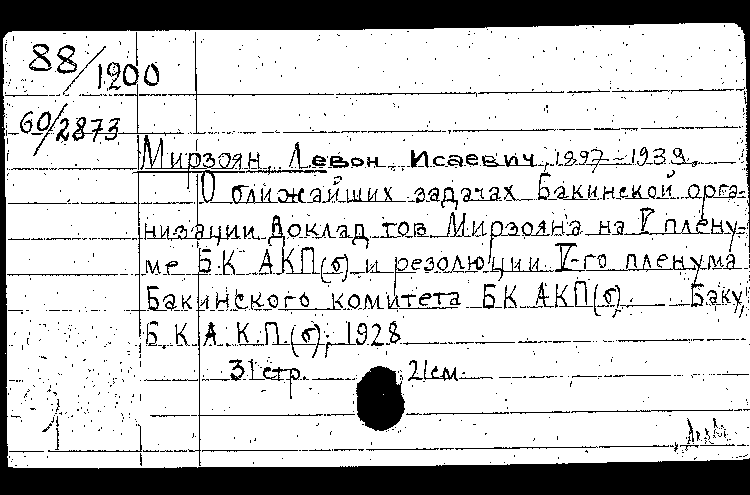 88/1200
60/2873
Мирзоян, Левон Исаевич, 1897-1938.
О ближайших задачах Бакинской орга-
низации Доклад тов Мирзояна на V плену-
ме Б.К АКП(б) и резолюции V-го пленума
Бакинского комитета БК АКП(б). Баку,
Б.К А.К.П.(б), 1928.
31 стр. 21 см.